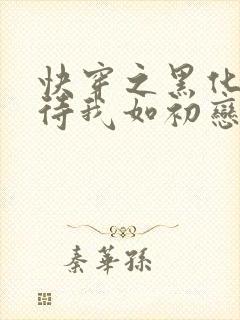 快穿之黑化
待我如初戀
秦華孫